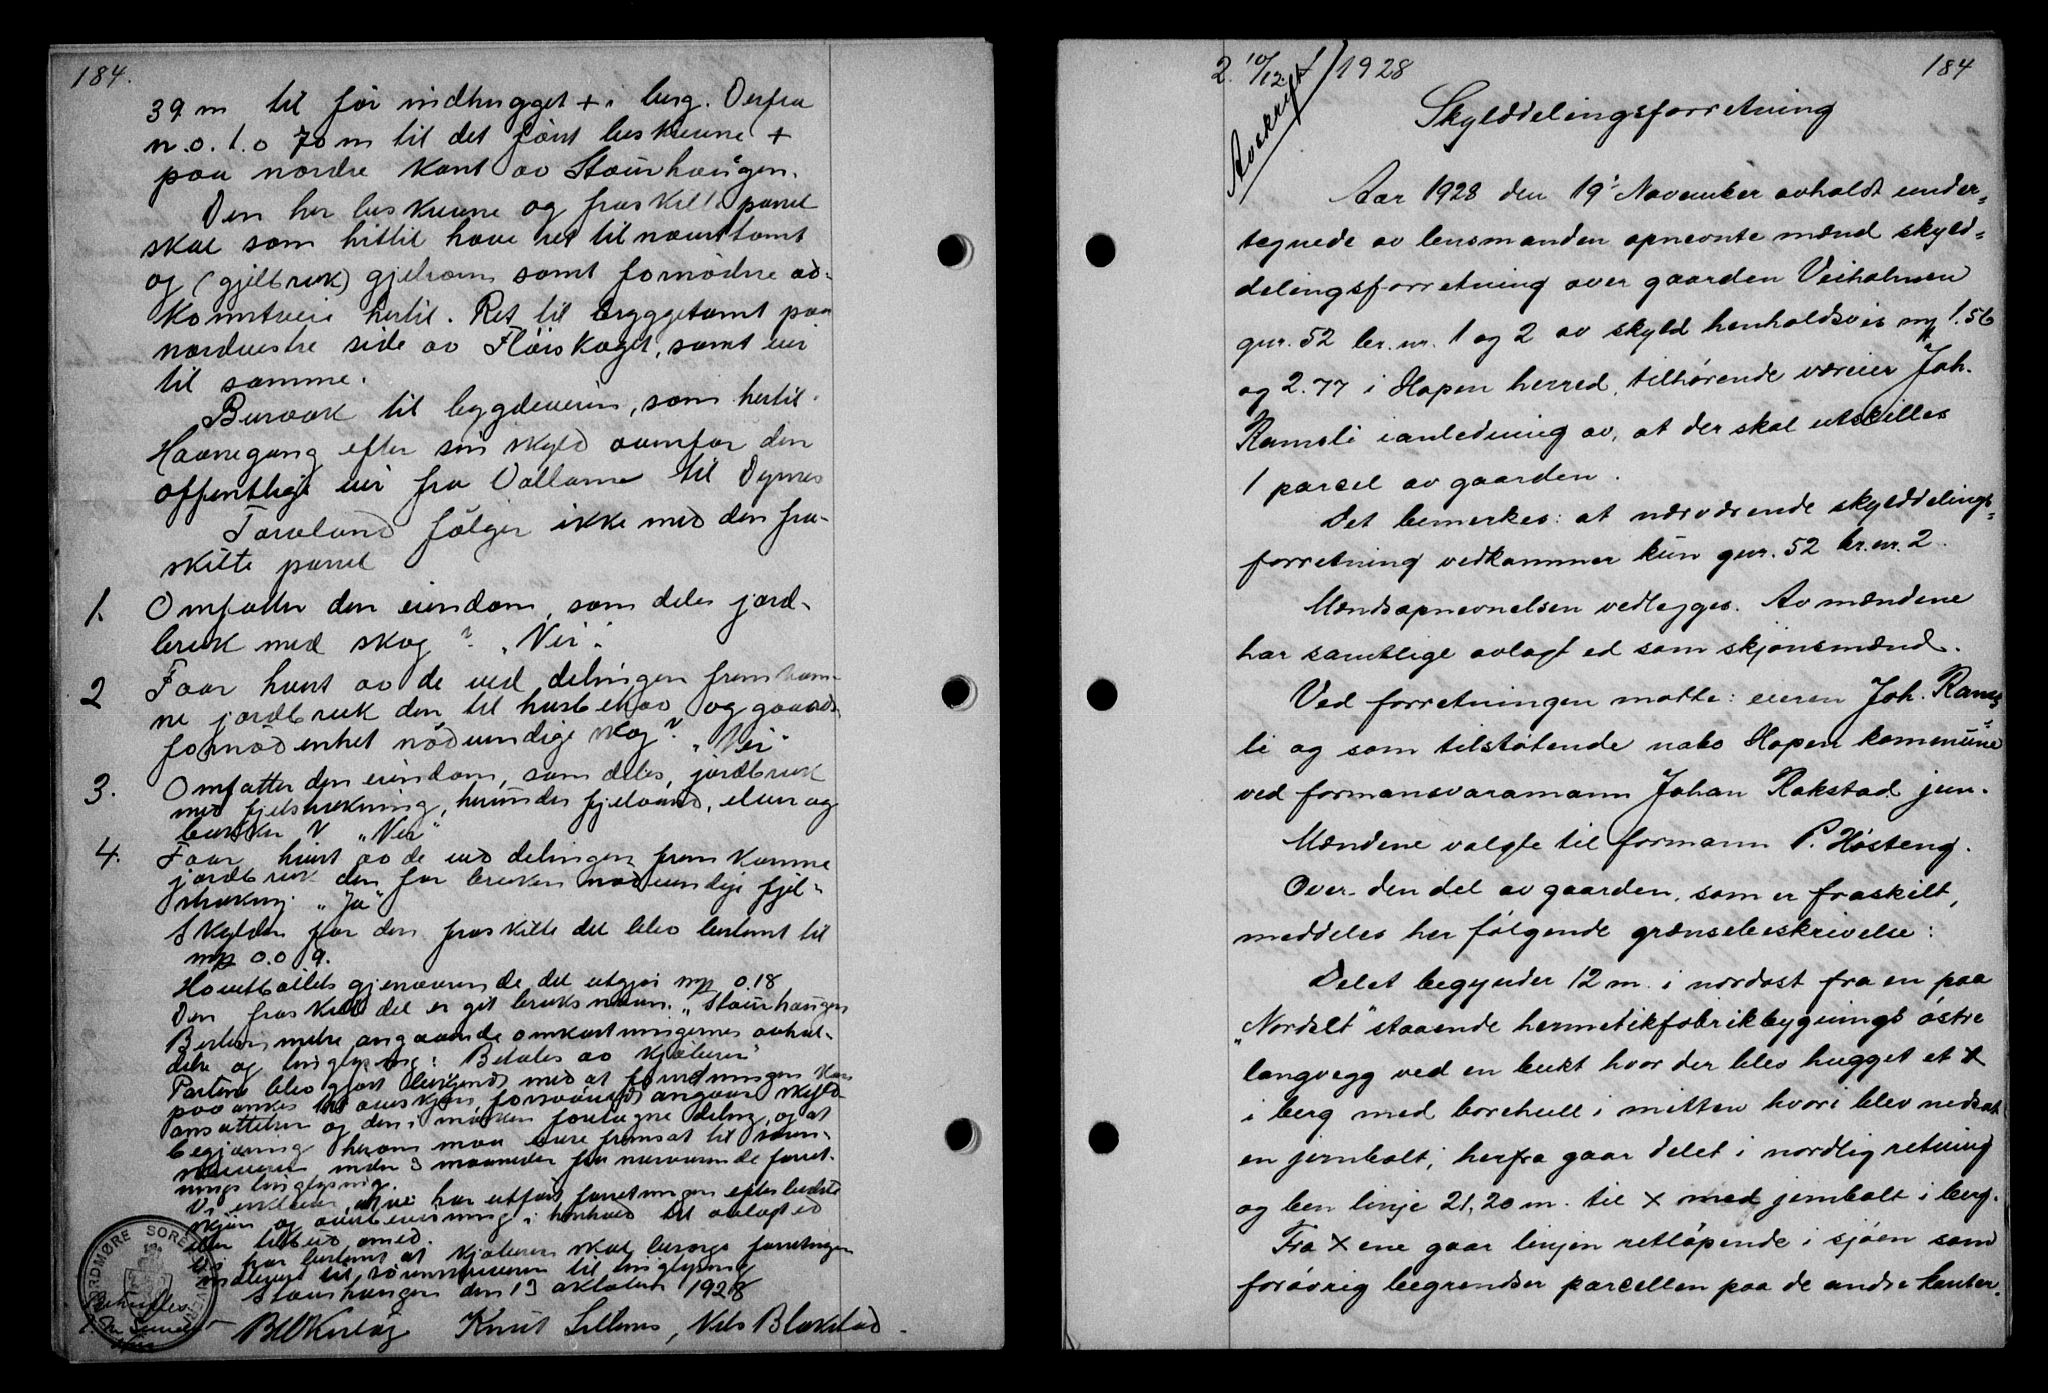 184.
39 m til før indhugget + i berg. Derfra
n.o. 1.o 70 m til det først beskrevne +
paa nordre kant av Staurhaugen.
Den her beskrevne og fraskilte parsel
skal som hittil have ret til nausttomt
og (gjeltbruk) gjelrom samt fornødne ad-
komstveie hertil. Ret til bryggetomt paa
nordvestre side av Flöiskaget, samt vei
til samme.
Burauk til bygdeveien, som hertil.
Havnegang efter sin skyld ovenfor den
offentlige vei fra Vollarne til Dyrnes
Tareland følger ikke med den fra-
skilte parsel
1. Omfatter den eiendom, som deles jord-
bruk med skog? "Nei".
2 Faar hvert av de ved delingen fremkom-
ne jordbruk den til husbehov og gaards-
fornødenhet nødvendige skog? "Nei"
3. Omfatter den eiendom, som deles, jordbruk
med fjelstrekning, herunder fjelvand, elver og
bekker? "Nei"
4. Faar hvert av de ved delingen fremkomne
jordbruk den for bruken nødvendige fjel-
strekning. "Ja"
Skylden for den fraskilte del blev bestemt til
mrk 0.09.
Hovedbølets gjenværende del utgjør mrk 0.18
Den fraskilte del er git bruksnavn "Staurhaugen
Bestemmelse angaaende omkostningernes avhol-
delse og tinglysning: "Betales av kjøberen"
Partene blev gjort bekjendt med at forretningen kan
paaankes til overskjøn forsaavidt angaar skyld-
ansættelsen og den i marken foretagne deling, og at
begjæring herom maa være fremsat til soren-
skriveren inden 3 maaneder fra nærværende forret-
nings tinglysning.
Vi erklærer, at vi har utført forretningen efter bedste
skjøn og overbevisning i henhold til avlagt ed
eller tilbud om ed.
Vi har bestemt at kjøberen skal besørge forretningen
indlevert til sorenskriveren til tinglysning
Staurhaugen den 13 oktober 1928
Knut Sillernes, Nils Blakstad.
2. 10/12. 1/1928
184
Avskrift
Skylddelingsforretning
Aar 1928 den 19' November avholdt under-
tegnede av lensmanden opnevnte mænd skyld-
delingsforretning over gaarden Veiholmen
gnr. 52 br. nr. 1 og 2 av skyld henholdsvis mrk 1.56
og 2.77 i Hopen herred, tilhørende væreier Joh.
Ramsli i anledning av, at der skal utskilles
1 parcel av gaarden.
Det bemerkes: at nærværende skylddelings-
forretning vedkommer kun gnr. 52 br. nr. 2.
Mændsopnevnelsen vedlegges. Av mændene
har samtlige avlagt ed som skjønsmænd.
Ved forretningen møtte: eieren Joh. Rams-
li og som tilstøtende nabo Hopen kommune
ved formansvaramann Johan Rokstad jun.
Mændene valgte til formann P. Høsteng.
Over den del av gaarden, som er fraskilt,
meddeles her følgende grænsebeskrivelse:
Delet begynder 12 m. i nordost fra en paa
"Nordalt" staaende hermetikfabrikbygnings østre
langvegg ved en bukt hvor der blev hugget et X
i berg med borehull i mitten hvori blev nedsat
en jernbolt; herfra gaar delet i nordlig retning
og ben linje 21,20 m. til X med jernbolt i berg.
Fra X ene gaar linjen retløpende i sjøen som
forøvrig begrendser parcellen paa de andre kanter.